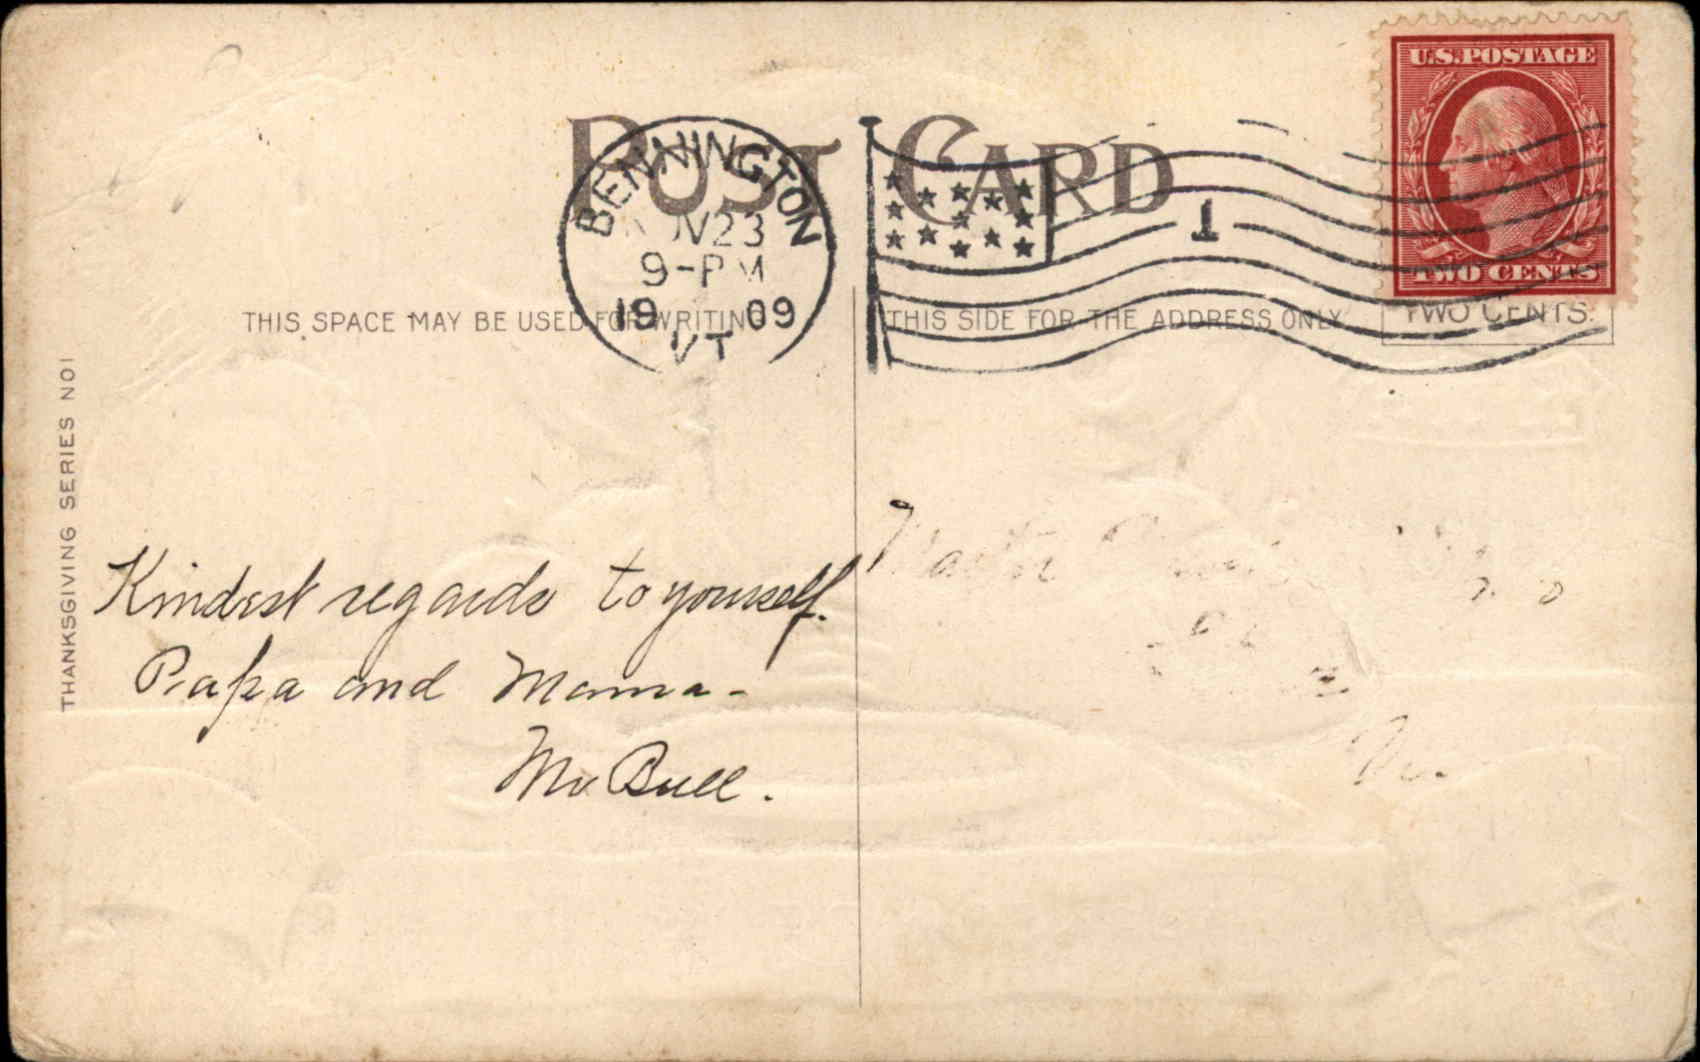 U.S. POSTAGE
TWO CENTS
POST CARD
BENNINGTON
NOV 23
9-PM
1909
VT
1
THIS SPACE MAY BE USED FOR WRITING
THIS SIDE FOR THE ADDRESS ONLY
TWO CENTS.
THANKSGIVING SERIES NO1
Kindest regards to yourself.
Papa and Mama-
Mr. Bull.
Master